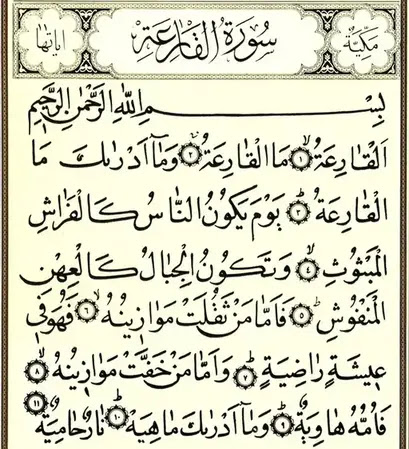 مكية سورة القارعة اياتها
بِسْمِ اللّٰهِ الرَّحْمٰنِ الرَّحٖيمِ
اَلْقَارِعَةُ ۙ ﴿١﴾ مَا الْقَارِعَةُ ۚ ﴿٢﴾ وَمَٓا اَدْرٰيكَ مَا
الْقَارِعَةُ ۜ ﴿٣﴾ يَوْمَ يَكُونُ النَّاسُ كَالْفَرَاشِ
الْمَبْثُوثِ ۙ ﴿٤﴾ وَتَكُونُ الْجِبَالُ كَالْعِهْنِ
الْمَنْفُوشِ ۜ ﴿٥﴾ فَاَمَّا مَنْ ثَقُلَتْ مَوَازٖينُهُ ۙ ﴿٦﴾ فَهُوَ فٖي
عٖيشَةٍ رَاضِيَةٍ ۜ ﴿٧﴾ وَاَمَّا مَنْ خَفَّتْ مَوَازٖينُهُ ۙ ﴿٨﴾
فَاُمُّهُ هَاوِيَةٌ ۜ ﴿٩﴾ وَمَٓا اَدْرٰيكَ مَا هِيَهْ ۜ ﴿١٠﴾ نَارٌ حَامِيَةٌ ﴿١١﴾